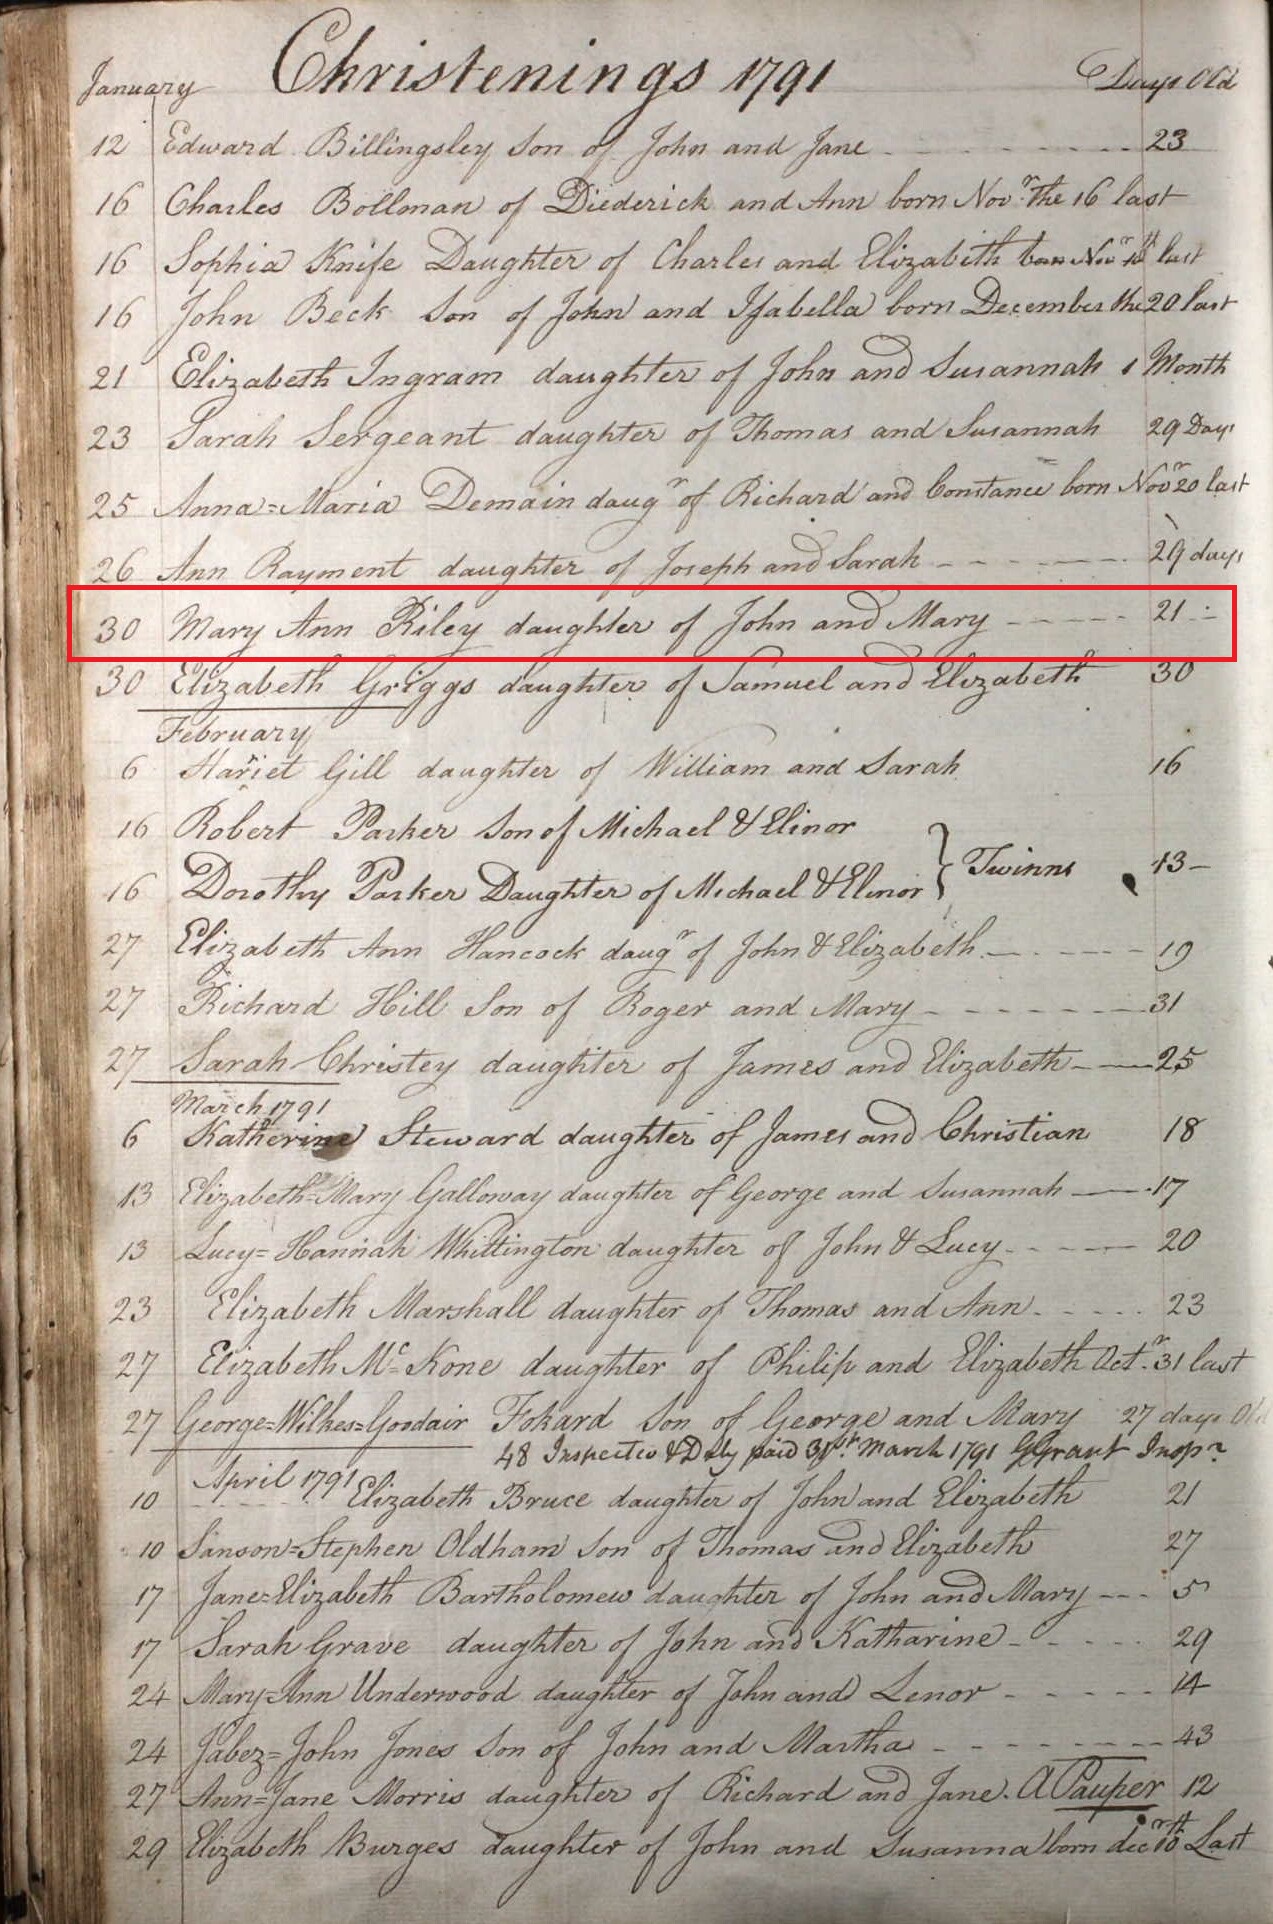 Christenings 1791
January Days Old
12 Edward Billingsley Son of John and Jane 23
16 Charles Bollman of Diederick and Ann born Novr. the 16 last
16 Sophia Knife Daughter of Charles and Elizabeth born Novr last
16 John Beck Son of John and Isabella born December the 20 last
21 Elizabeth Ingram daughter of John and Susannah 1 Month
23 Sarah Sergeant daughter of Thomas and Susannah 29 Days
25 Anna=Maria Demain daugr of Richard and Constance born Novr 20 last
26 Ann Rayment daughter of Joseph and Sarah 29 days
30 Mary Ann Riley daughter of John and Mary 21
30 Elizabeth Griggs daughter of Samuel and Elizabeth 30
February
6 Harriet Gill daughter of William and Sarah 16
16 Robert Parker Son of Michael & Elinor
} Twinns 13
16 Dorothy Parker Daughter of Michael & Elinor
27 Elizabeth Ann Hancock daugr of John & Elizabeth 19
27 Richard Hill Son of Roger and Mary 31
27 Sarah Christey daughter of James and Elizabeth 25
March 1791
6 Katherine Steward daughter of James and Christian 18
13 Elizabeth=Mary Galloway daughter of George and Susannah 17
13 Lucy=Hannah Whittington daughter of John & Lucy 20
23 Elizabeth Marshall daughter of Thomas and Ann 23
27 Elizabeth Mc Kone daughter of Philip and Elizabeth Octr. 31 last
27 George=Wilkes=Goodair Fokard Son of George and Mary 27 days Old
48 Inspected & Duty paid 31st. March 1791 GGrant Inspr
April 1791
10 Elizabeth Bruce daughter of John and Elizabeth 21
10 Sanson=Stephen Oldham Son of Thomas and Elizabeth 27
17 Jane=Elizabeth Bartholomew daughter of John and Mary 5
17 Sarah Grave daughter of John and Katharine 29
24 Mary=Ann Underwood daughter of John and Lenor 14
24 Jabez=John Jones Son of John and Martha 43
27 Ann=Jane Morris daughter of Richard and Jane. A Pauper 12
29 Elizabeth Burges daughter of John and Susanna born decr 10th Last